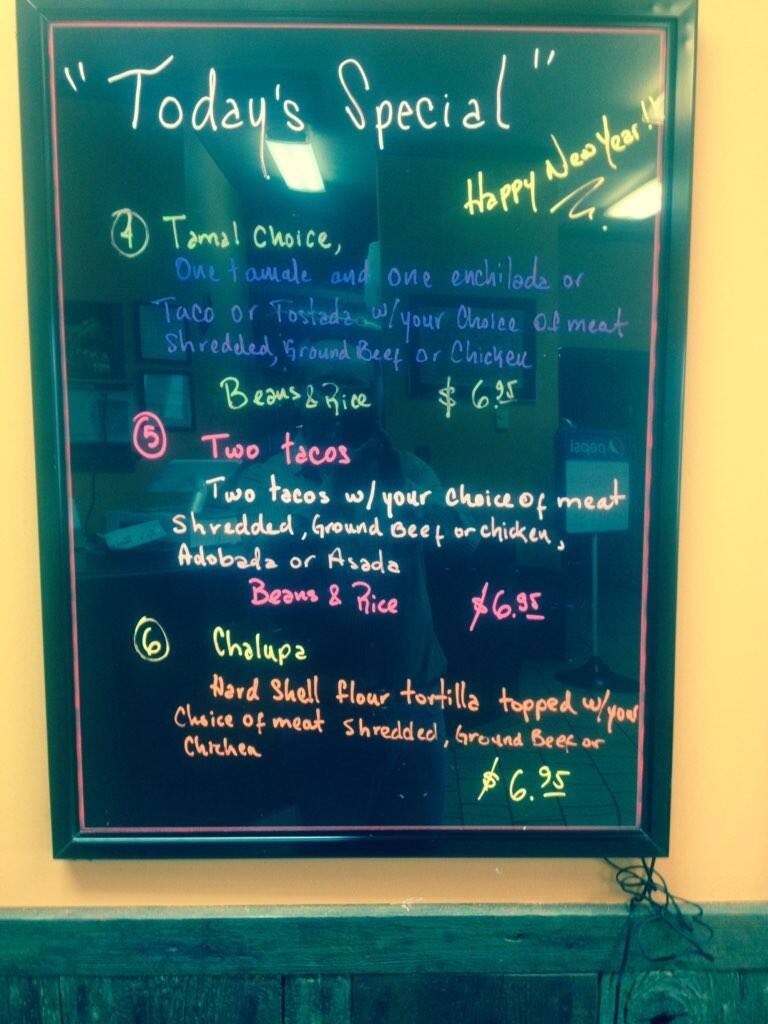 "Today's Special"
Happy New Year!!
4 Tamal Choice,
One tamale and one enchilada or
Taco or Tostada w/your Choice Of meat
Shredded, Ground Beef or Chicken
Beans & Rice $6.95
5 Two tacos
Two tacos w/your choice of meat
Shredded, Ground Beef or chicken,
Adobada or Asada
Beans & Rice $6.95
6 Chalupa
Hard Shell flour tortilla topped w/your
Choice of meat Shredded, Ground Beef or
Chicken
$6.95
pepsi